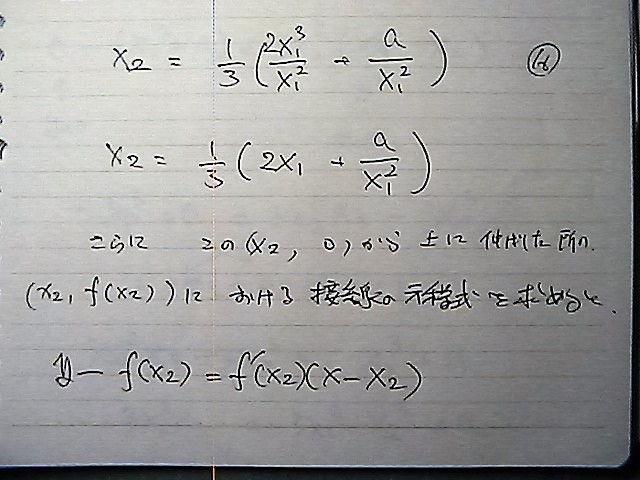 x₂ = 1/3 (2x₁³/x₁² + a/x₁²)
x₂ = 1/3 (2x₁ + a/x₁²)
さらに この(x₂, 0)から 上に 伸ばした 所の
(x₂, f(x₂))に おける 接線の 方程式を求めると.
y − f(x₂) = f'(x₂)(x − x₂)